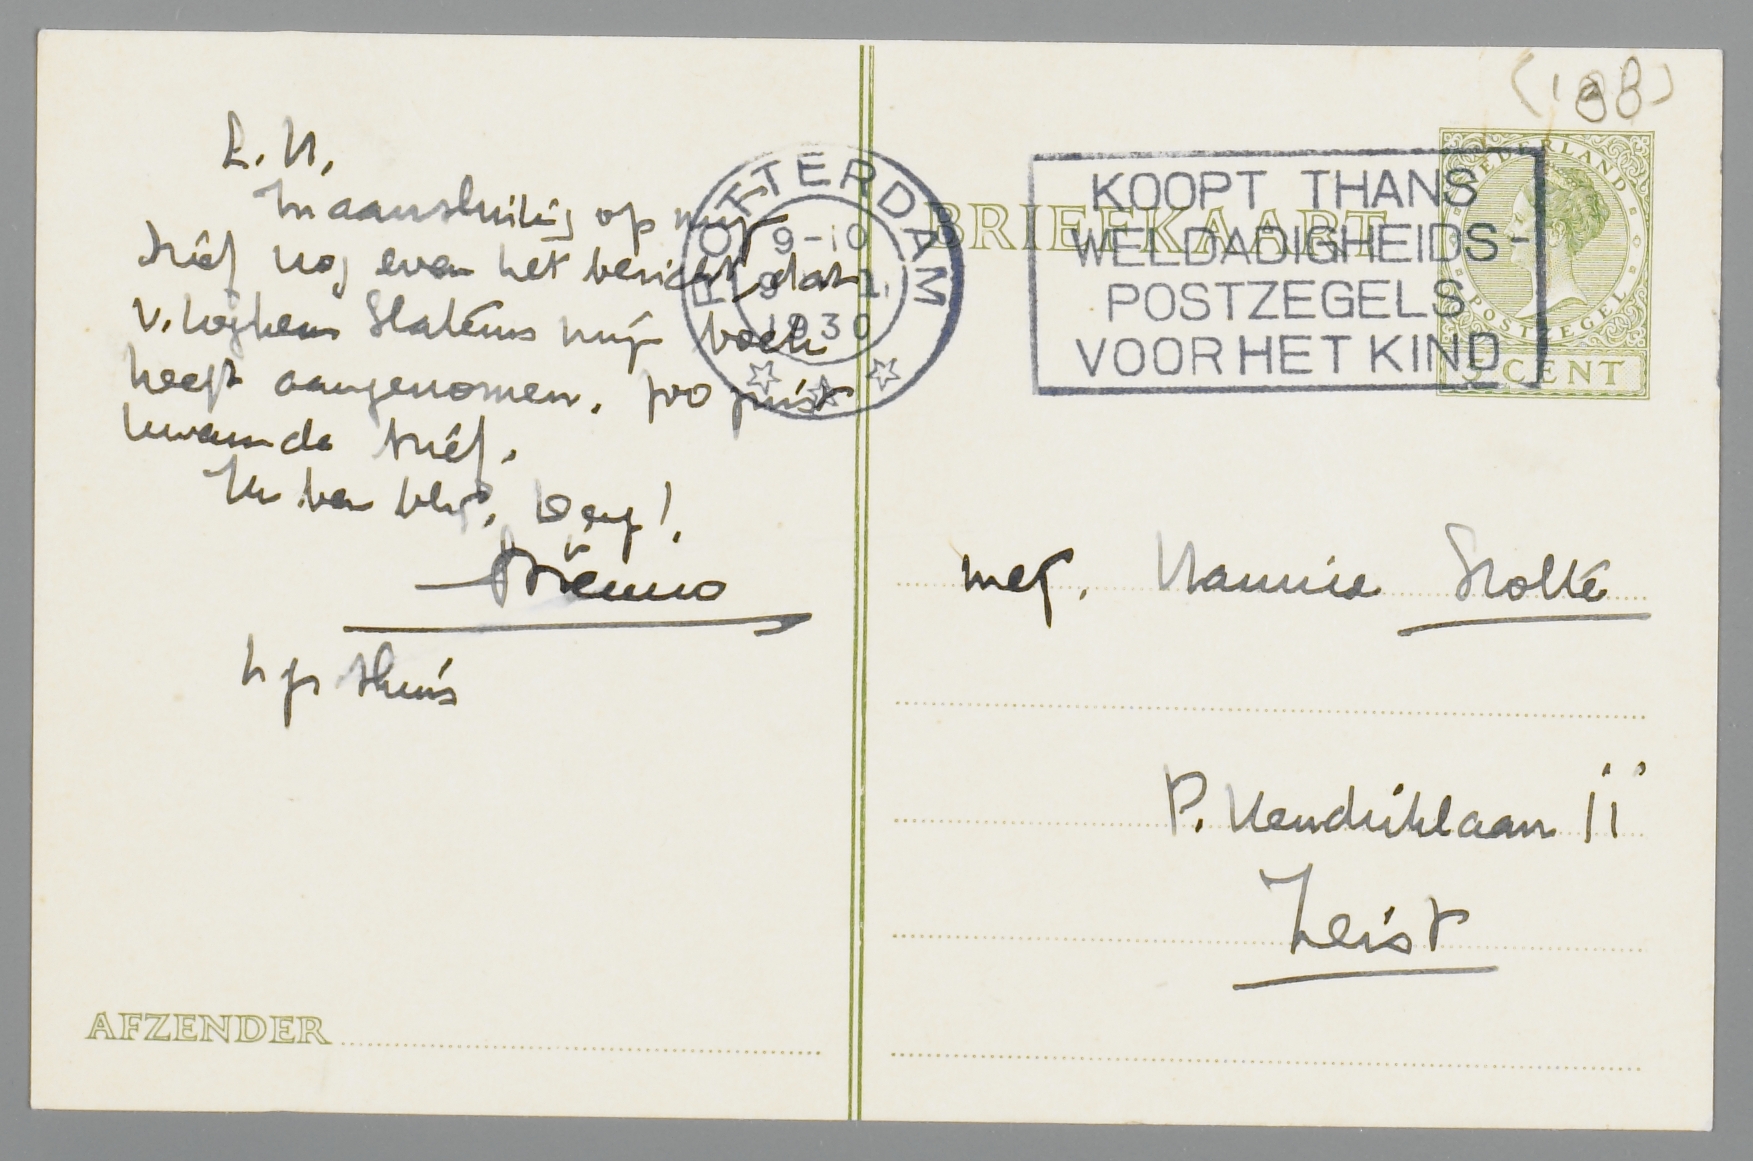 L. N,
In aansluiting op mijn
brief nog even het bericht, dat
v. Loghem Slaterus mijn boek
heeft aangenomen. zoo juist
kwam de brief.
Ik ben blij. Dag!
Menno
thuis
AFZENDER
ROTTERDAM
9-10
1930
BRIEFKAART
KOOPT THANS
WELDADIGHEIDS-
POSTZEGELS
VOOR HET KIND
(188)
NEDERLAND
POSTZEGEL
5 CENT
mej. Nannie Stolte
P. Hendriklaan 11
Zeist